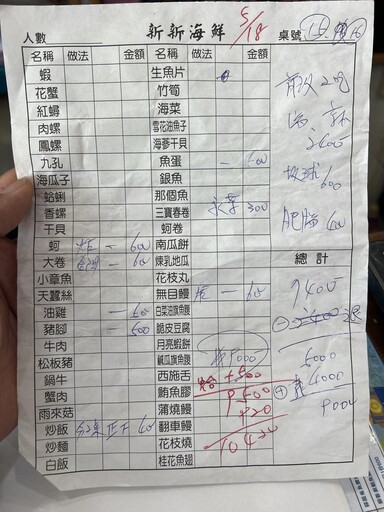 人數 新新海鮮 5/18 桌號
名稱 做法 金額 名稱 做法 金額
蝦 生魚片
花蟹 竹筍
紅蟳 海菜
肉螺 雪花油魚子
鳳螺 海蔘干貝
九孔 魚蛋 一 600
海瓜子 銀魚
蛤蜊 那個魚
香螺 三寶春卷 300
干貝 蚵卷
蚵 炸 一 600 南瓜餅
大卷 一 600 煉乳地瓜
小章魚 花枝丸
天蠶絲 無目鰻 一 600
油雞 一 600 白菜油魚膘
豬腳 一 500 脆皮豆腐
牛肉 月亮蝦餅
松板豬 鹹瓜旗魚膘 5000
鍋牛 西施舌 +500
蟹肉 鮪魚膠 9500
雨來菇 蒲燒鰻 920
炒飯 翻車鰻 10420
炒麵 花枝燒
白飯 桂花魚翅
2400
600
肥腸 600
總計
9400
5400 退
5000
4000
9000